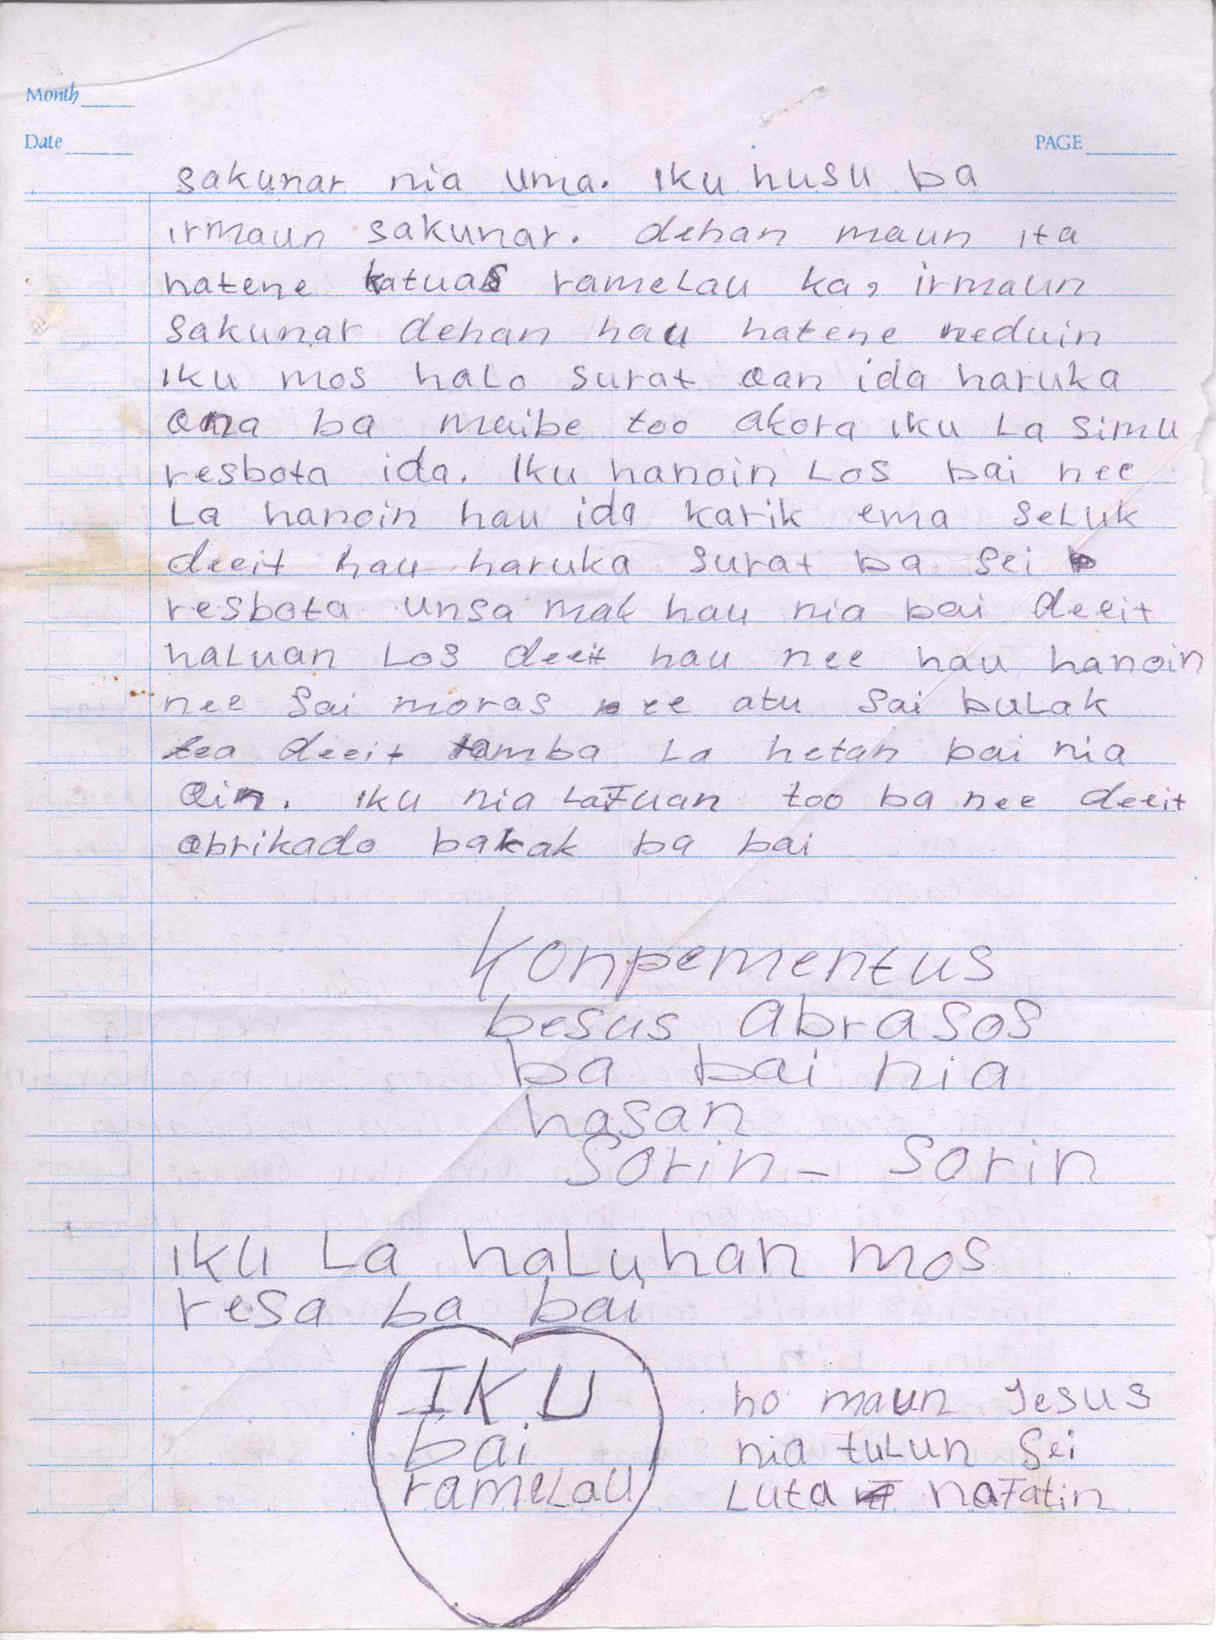 Month
Date
PAGE
sakunar nia uma. iku husu ba
irmaun sakunar. dehan maun ita
hatene katuas rameLau ka, irmaun
sakunar dehan hau hatene neduin
iku mos haLo surat oan ida haruka
ona ba maibe too akora iku La simu
resbota ida. Iku hanoin Los bai nee
La hanoin hau ida karik ema seLuk
deeit hau haruka surat ba sei
resbota unsa mak hau nia bai deeit
haLuan Los deeit hau nee hau hanoin
nee sai moras nee atu sai buLak
tea deeit tamba La hetan bai nia
Oin. iku nia Lafuan too ba nee deeit
obrikado bakak ba bai
Konpementus
besus abrasos
ba bai nia
hasan
Sorin - sorin
iku La haLuhan mos
resa ba bai
IKU
bai
rameLau
ho maun Jesus
nia tuLun sei
Luta nafatin